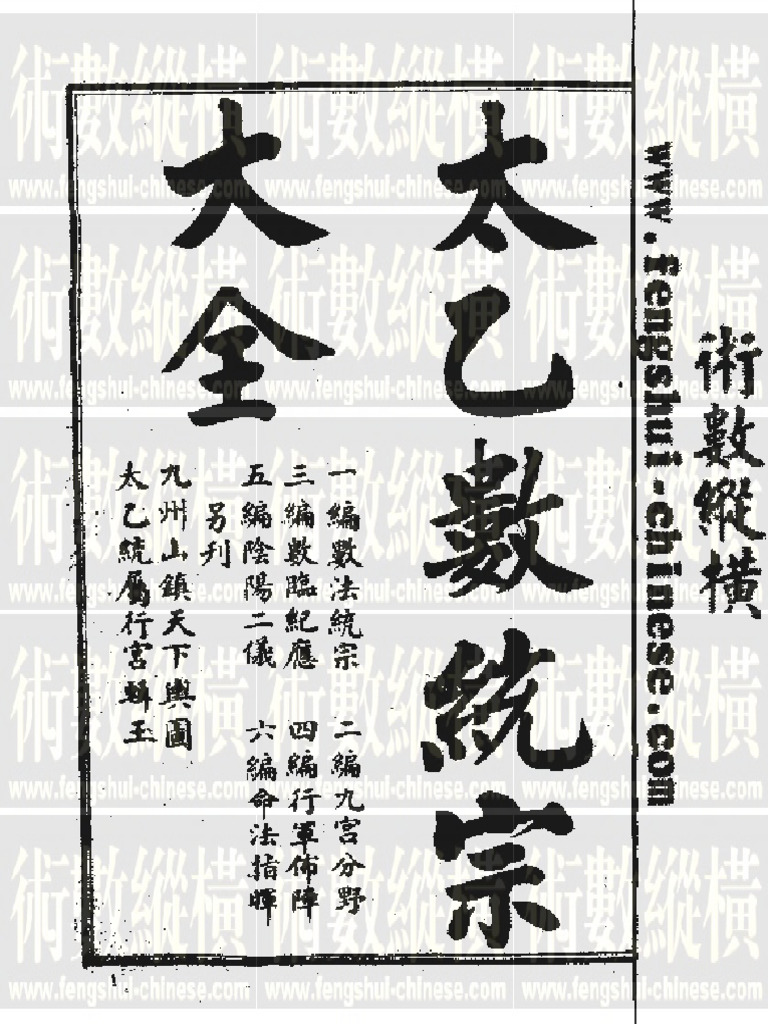 術數縱橫
www.fengshui-chinese.com
太乙數統宗
大全
一編數法統宗 二編九宮分野
三編數臨紀應 四編行軍佈陣
五編陰陽二儀 六編命法指暉
另刊
九州山鎮天下輿圖
太乙統屬行宮輯玉